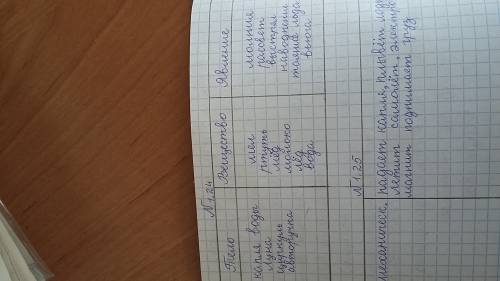 N 1.24.
Тело
Вещество
Явление
капля воды
Луна
циркуль
авторучка
мел
ртуть
мёд
молоко
лёд
вода
молния
рассвет
выстрел
наводнение
таяние льда
вьюга
N 1.25
механическ.
падает капля, плывёт
летит самолёт, электро
магнит поднимает груз